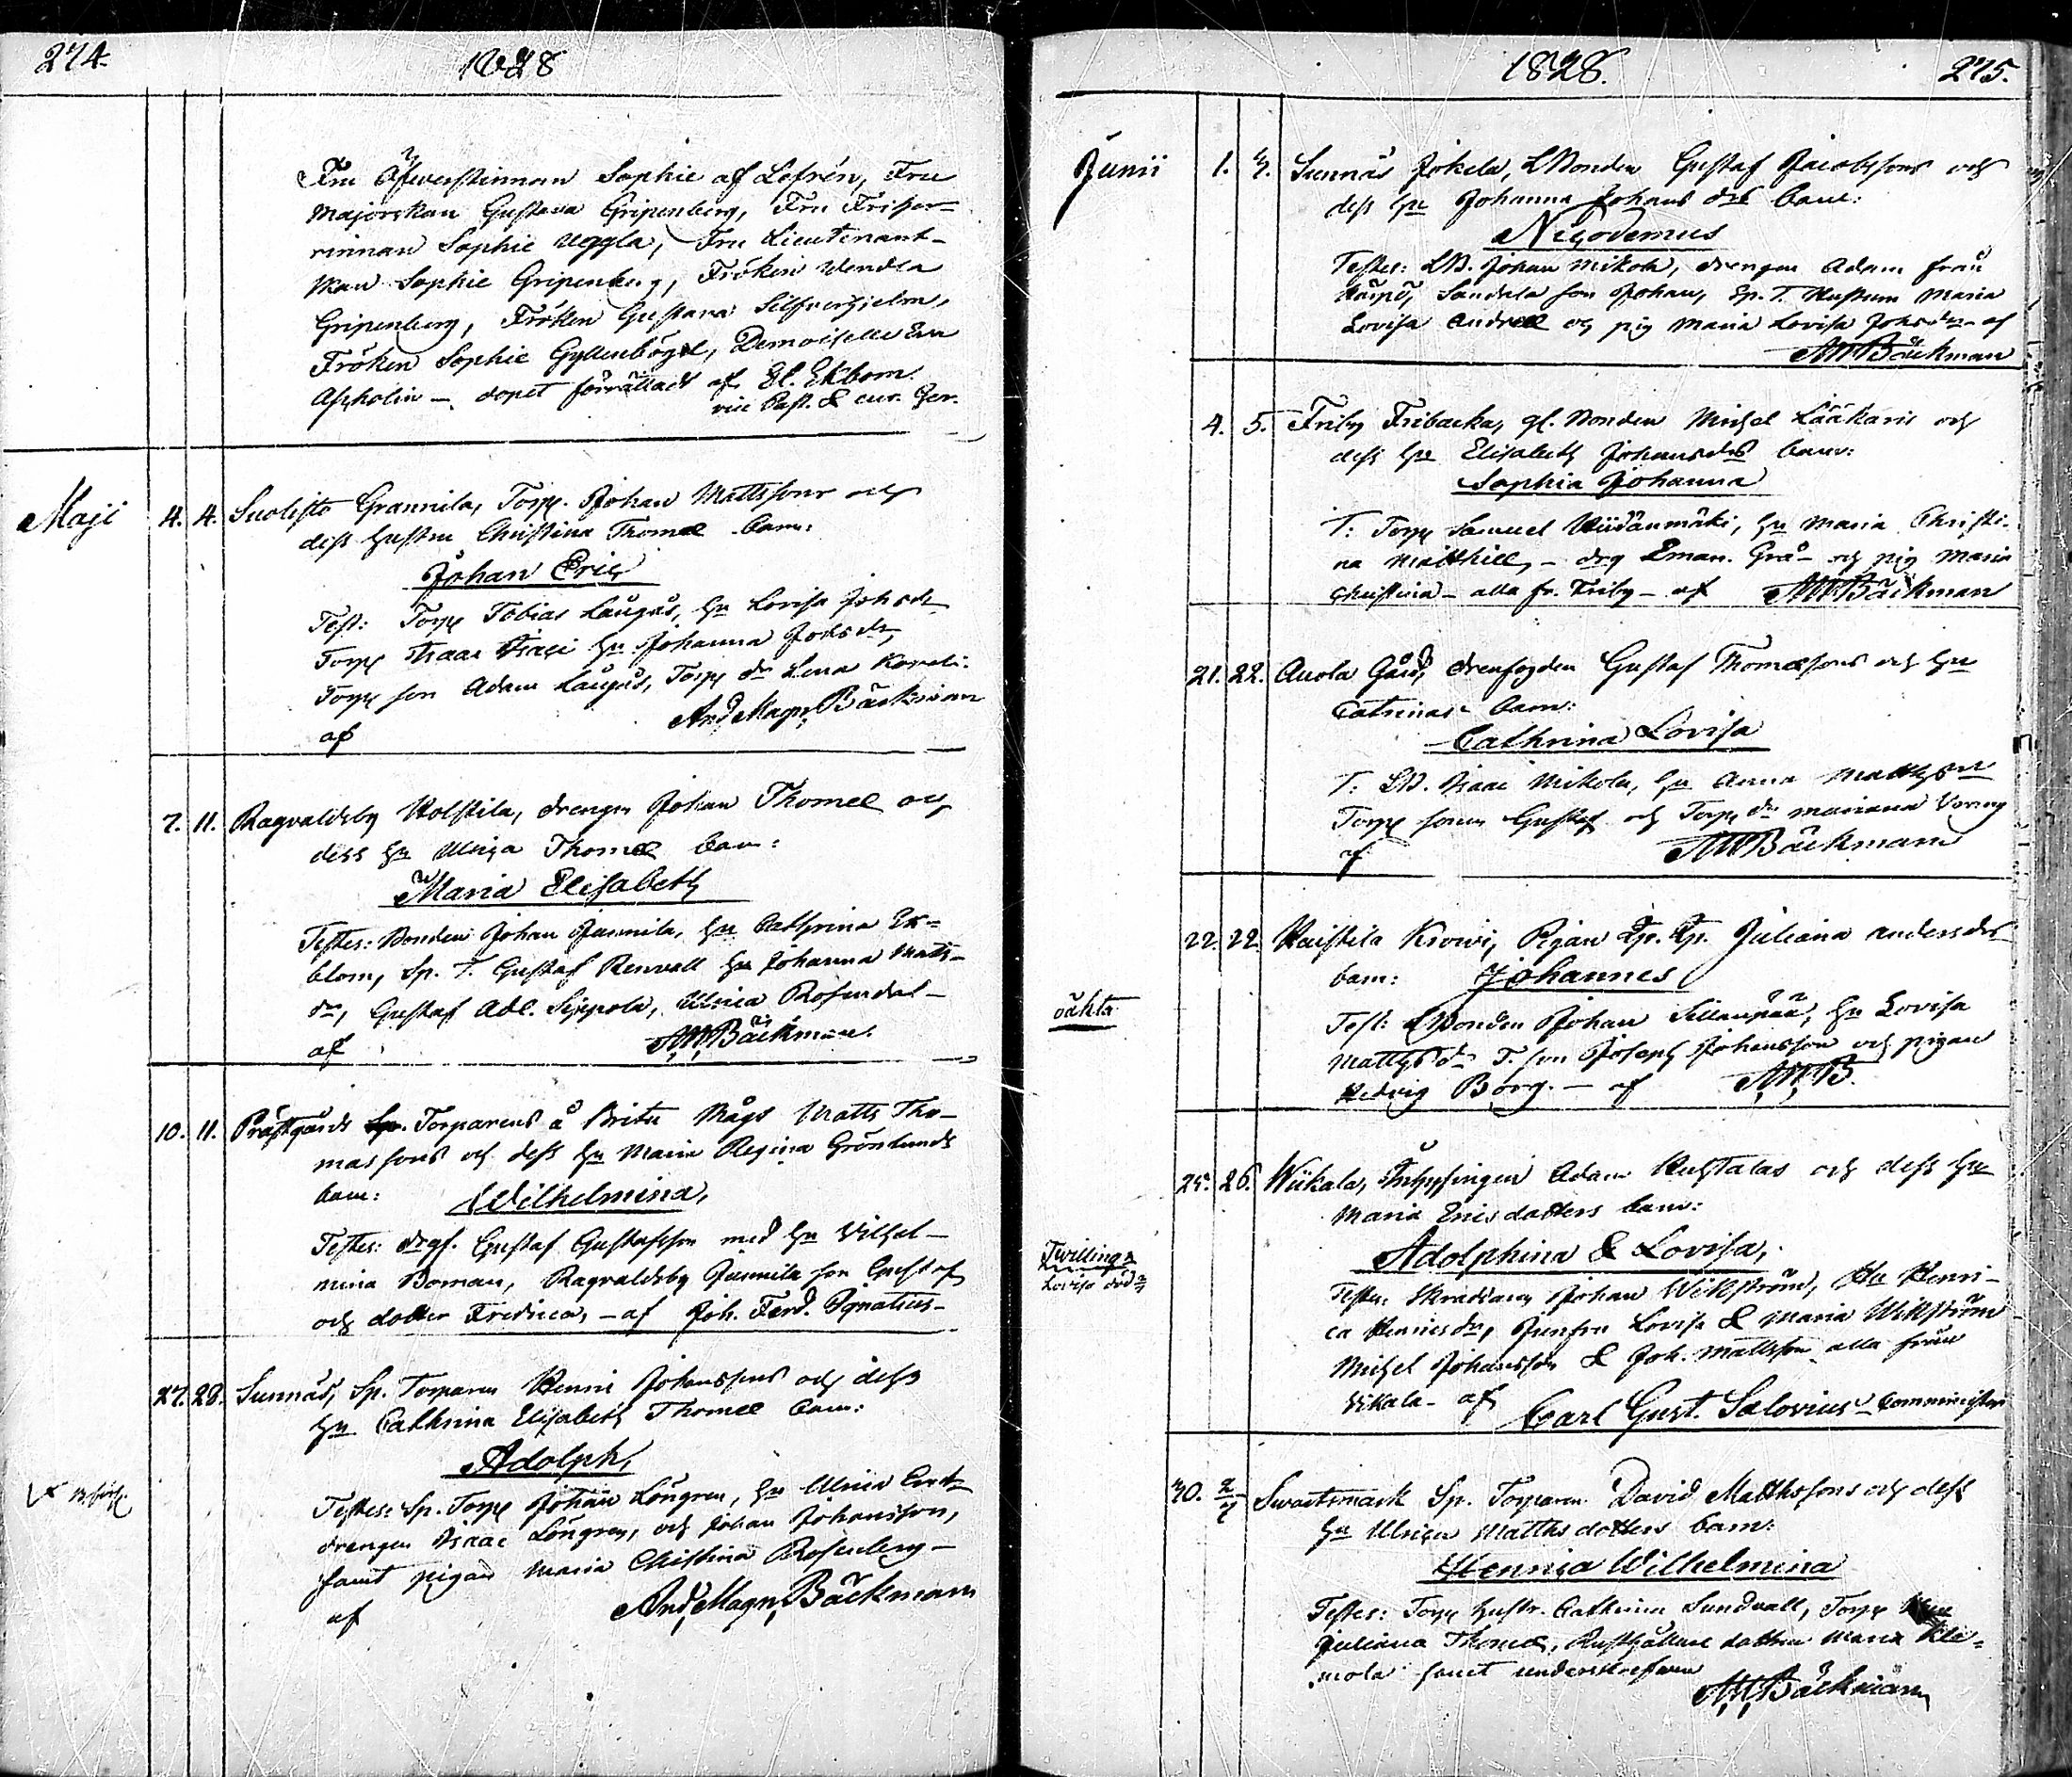 274.
1828
Fru Öfverstinnan Sophie af Lefrén, Fru
Majorskan Gustava Gripenberg, Fru Friher-
rinnan Sophie Uggla, Fru Lieutenant-
skan Sophie Gripenberg, Fröken Wendla
Gripenberg, Fröken Gustava Silfverhjelm,
Fröken Sophie Gyllenbögel, Demoiselle Eva
Aspholin — dopet förrättadt af El. Ekbom.
vice Past. & cur. Ger.
Maji
4. 4. Suolisto Grannila, Torp. Johan Mattssons och
dess hustru Christina Thomæ barn:
Johan Eric
Test: Torp Tobias Laugus, hu Lovisa Johsdr
Torp Isaac hu Johanna Johsdr,
Torp son Adam Laugus, Torp dr Lena
af And. Magn. Bäckman
7. 11. Ragvaldsby Kolstila, drengen Johan Thomæ och
dess hu Ulrica Thomæ barn:
Maria Elisabeth
Testes: Bonden Johan Junnila, hu Cathrina Ek-
blom, Sp. T. Gustaf Renvall hu Johanna Matts-
dr, Gustaf Adl. Sippola, Ulrica Rosendal —
af A. M. Bäckman.
10. 11. Prästgårds Torparens å Matts Tho-
mas sons och dess hu Maria Regina Grönlunds
barn: Wilhelmina,
Testes: Gustaf Gustafsson med hu Vilhel-
mina Boman, Ragvaldsby Junnila son Gustaf
och dotter Fredrica, — af Joh. Ferd. Ignatius —
27. 28. Sunnäs, Sp. Torparen Henric Johanssons och dess
hu Cathrina Elisabeth Thomæ barn:
Adolph,
Testes: Sp. Torp Johan Löngren, hu Ulrica
drengen Isaac Löngren, och Johan Johansson,
samt pigan Maria Christina Rosenberg —
af And. Magn. Bäckman
1828.
275.
Junii
1. 3. Sunnäs Jokela, LBonden Gustaf Jacobssons och
dess hu Johanna Johans drs barn:
Nicodemus
Testes: LB. Johan Mikola, drengen Adam från
Sandala son Johan, Sp. T. Hustrun Maria
Lovisa Andreæ och pig Maria Lovisa Johsdr — af
A M Bäckman
4. 5. Friby Fribacka, gl. Bonden Michel Lääkäris och
dess hu Elisabeth Johansdrs barn:
Sophia Johanna
T: Torp Samuel Hiidänmäki, hu Maria Christi-
na Matthiæ, — drg Eman. Grå — och pig Maria
Christina — alla fr. Friby — af A M Bäckman
21. 22. Auola Gård, drenfogden Gustaf Thomæsons och hu
Catrinas barn:
Cathrina Lovisa
T: LB. Isaac Mikola, hu Anna Matthsdr
Torp sonen Gustaf och Torp dr Mariana
af A M Bäckman
22. 22. Krovi, Pigan Juliana Andersdrs
barn: Johannes
oäkta
Test: LBonden Johan Sillanpää, hu Lovisa
Matths dr T. son Joseph Johansson och pigan
Hedvig Borg. — af A. M. B.
25. 26. Wikala, Inhysingen Adam Huhtalas och dess hu
Maria Ericsdotters barn:
Adolphina & Lovisa,
Twillingar
Lovisa död
Testes: Skräddaren Johan Wikström, Hu Henri-
ca Henricsdr, Jungfru Lovisa & Maria Wikström
Michel Johansson & Joh. Mattsson alla från
Vikala — af Carl Gust. Salovius Comminister
30. 2/7 Swartsmark Sp. Torparen David Matthssons och dess
hu Ulrica Matthsdotters barn:
Hennica Wilhelmina
Testes: Torp hustr. Cathrina Sundvall, Torp
Juliana Thomæ, Rusthållare dottren Maria Kle-
mola samt underskrefven
A. M. Bäckman